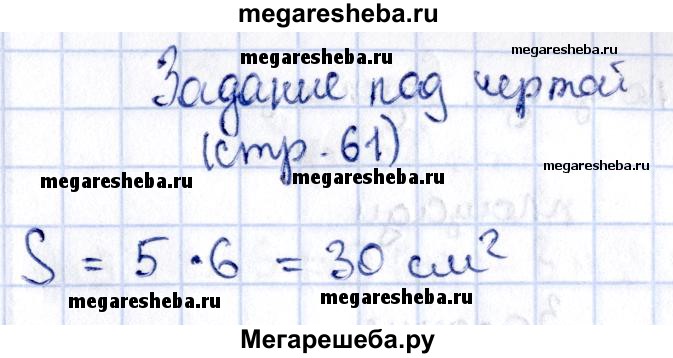 megaresheba.ru
megaresheba.ru megaresheba.ru
Задание под чертой
(стр. 61)
megaresheba.ru megaresheba.ru megaresheba.ru
S = 5 · 6 = 30 см²
megaresheba.ru megaresheba.ru
Мегарешеба.ру